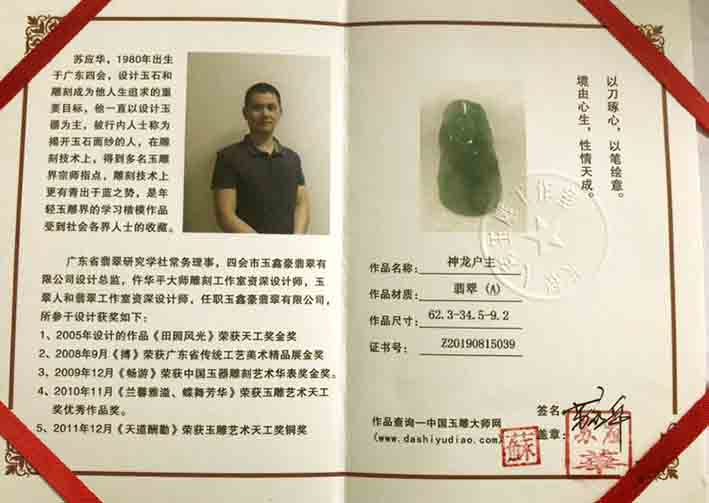 苏应华，1980年出生
于广东四会，设计玉石和
雕刻成为他人生追求的重
要目标，他一直以设计玉
雕为主，被行内人士称为
揭开玉石面纱的人，在雕
刻技术上，得到多名玉雕
界宗师指点，雕刻技术上
更有青出于蓝之势，是年
轻玉雕界的学习楷模作品
受到社会各界人士的收藏。
广东省翡翠研究学社常务理事，四会市玉鑫豪翡翠有
限公司设计总监，仵华平大师雕刻工作室资深设计师，玉
翠人和翡翠工作室资深设计师，任职玉鑫豪翡翠有限公司，
所参于设计获奖如下：
1、2005年设计的作品《田园风光》荣获天工奖金奖
2、2008年9月《搏》荣获广东省传统工艺美术精品展金奖
3、2009年12月《畅游》荣获中国玉器雕刻艺术华表奖金奖。
4、2010年11月《兰馨雅溢、蝶舞芳华》荣获玉雕艺术天工
奖优秀作品奖。
5、2011年12月《天道酬勤》荣获玉雕艺术天工奖铜奖
以刀琢心，以笔绘意。
境由心生，性情天成。
作品名称：神龙户主
作品材质：翡翠（A）
作品尺寸：62.3-34.5-9.2
证书号：Z20190815039
签名：
盖章：
作品查询—中国玉雕大师网
（www.dashiyudiao.com）
蘇